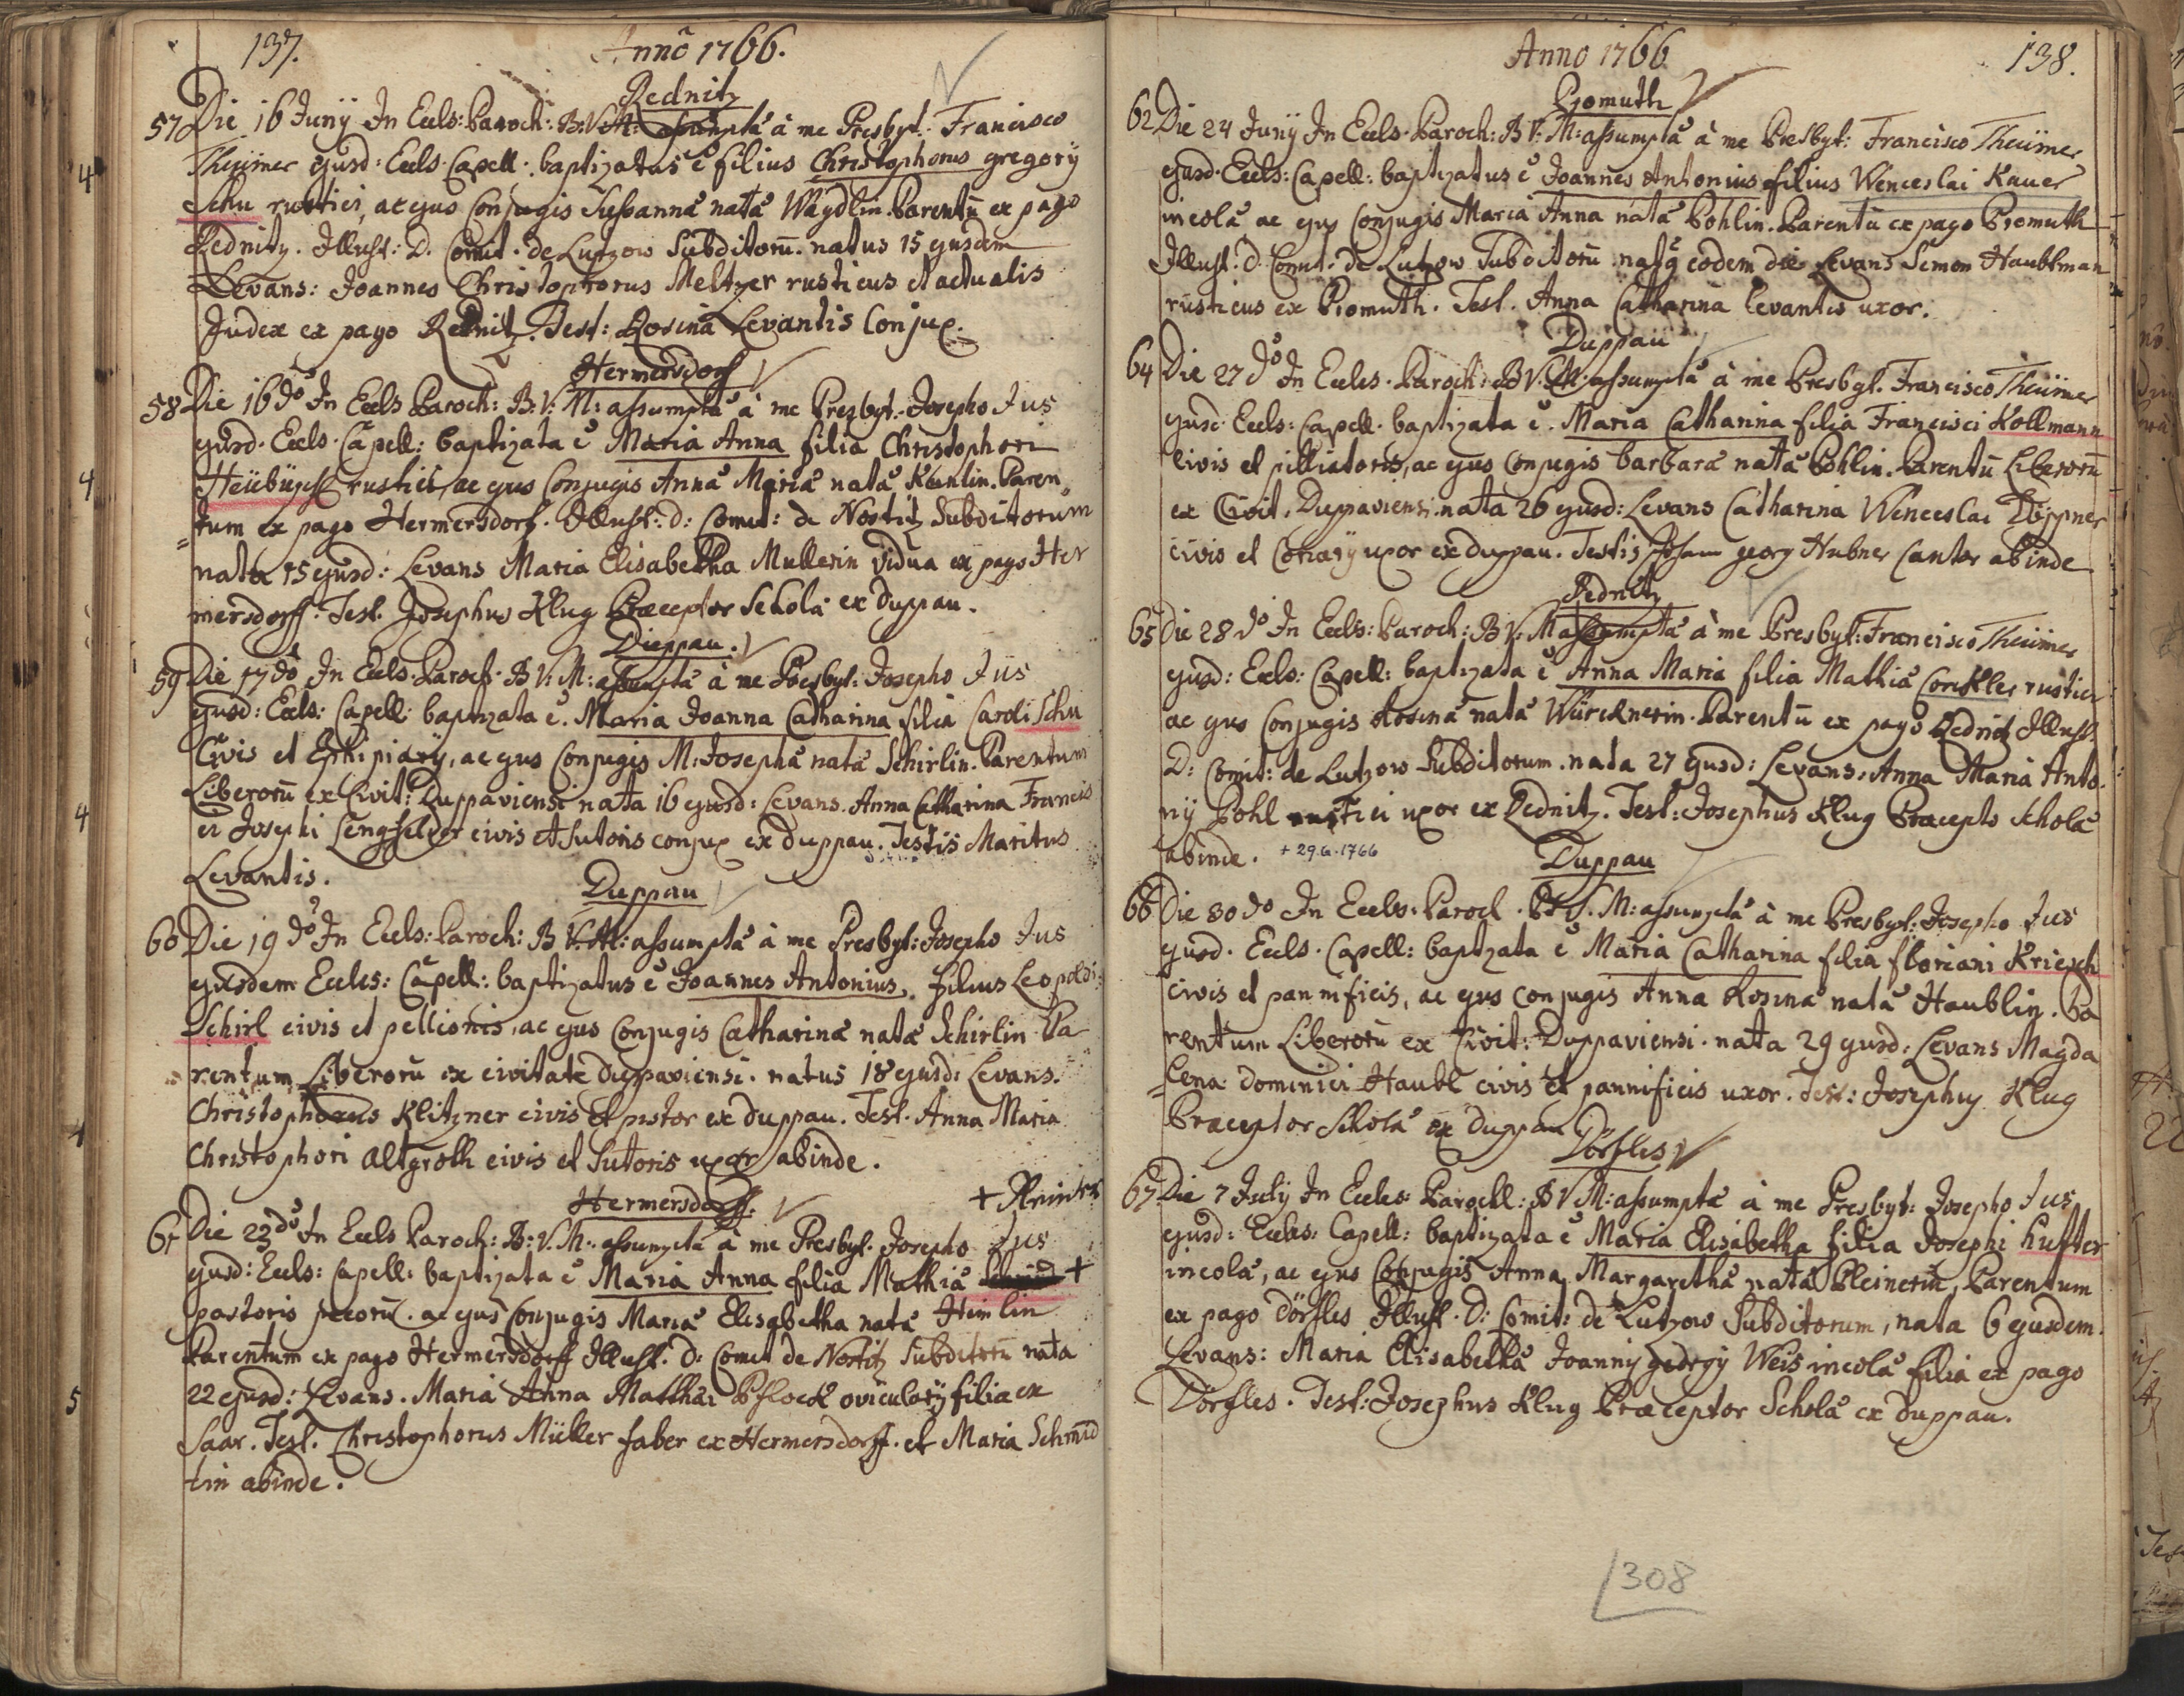 137.
Anno 1766.
Rednitz
57 Die 16 Junij In Eccls: Paroch: B:V:M: assumptæ à me Presbyt. Francisco
Theümer ejusd: Eccls. Capell. baptizatus ē filius Christophorus gregorij
Schu rustici, ac ejus Conjugis Susannæ natæ Waydlin. Parentū ex pago
Rednitz. Illust: D. Comit. de Lutzow Subditorū. natus 15 ejusdem
Levans: Joannes Christophorus Meltzer rusticus et actualis
Judex ex pago Rednitz. Test: Rosina Levantis Conjux.
Hermersdorf
58 Die 16 do In Eccls Paroch: B:V:M: assumptæ à me Presbyt. Josepho Jus
ejusd. Eccls. Capell: baptizata ē Maria Anna filia Christophori
rustici, ac ejus Conjugis Anna Maria natæ Paren
tum ex pago Hermersdorf. Illust: d: Comit: de Nostitz Subditorum
nata 15 ejusd: Levans Maria Elisabetha Mullerin vidua ex pago Her
mersdorff. Test. Josephus Klug Præceptor Scholæ ex Duppau.
Dieppau.
59 Die 17 do In Eccls. Paroch. B V: M: assumptæ à me Presbyt: Josepho Jus
ejusd: Eccls: Capell: baptizata ē. Maria Joanna Catharina filia Caroli Schu
Civis et Ephipiarij, ac ejus Conjugis M: Josephæ natæ Schirlin. Parentum
Liberorū ex Civit: Duppaviensi nata 16 ejusd: Levans. Anna Catharina Francis
ci Josephi civis et Sutoris conjux ex Duppau. Testis Maritus
Levantis.
Duppau
60 Die 19 do In Eccls: Paroch: B V: M: assumptæ à me Presbyt: Josepho Jus
ejusdem Eccles: Capell: baptizatus ē Joannes Antonius, filius Leopoldi
Schirl civis et pellionis, ac ejus Conjugis Catharinæ natæ Schirlin Pa
rentum Liberorū ex civitate duppaviensi. natus 18 ejusd: Levans.
Christophorus Klitzner civis et pistor ex duppau. Test. Anna Maria
Christophori Altgroth civis et Sutoris uxor abinde.
Hermersdorff.
61 Die 23 do In Eccls Paroch: B: V. M: assumptæ à me Presbyt. Josepho Jus
ejusd: Eccls: Capell: baptizata ē Maria Anna filia Mathiæ +
pastoris pecorū. ac ejus Conjugis Maria Elisabetha natæ Heinlin
Parentum ex pago Hermersdorff Illust. d: Comit de Nostitz Subditorū nata
22 ejusd: Levans. Maria Anna Matthæi Pflock oviculorij filia ex
Saar. Test. Christophorus Müller faber ex Hermersdorff. et Maria Schmid
tin abinde.
Anno 1766
138.
Promuth
62 Die 24 Junij In Eccls. Paroch: B V: M: assumptæ à me Presbyt: Francisco Theümer
ejusd. Eccls: Capell: baptizatus ē Joannes Antonius filius Wenceslai Kauer
incolæ ac ejus Conjugis Maria Anna natæ Pohlin. Parentū ex pago Promuth
Illust. d. Comit: de Lutzow Subditorū natq eodem die Levans Simon Haubtman
rusticus ex Promuth. Test. Anna Catharina Levantis uxor.
Duppau
64 Die 27 do In Eccles. Paroch: B V: M: assumptæ à me Presbyt. Francisco Theümer
ejusd: Eccls: Capell. baptizata ē. Maria Catharina filia Francisci Kollmann
civis et pilliatoris, ac ejus Conjugis Barbaræ natæ Pohlin. Parentū Liberorū
ex Civit. Duppaviensi. nata 26 ejusd: Levans Catharina Wenceslai Töppner
civis et Coriarij uxor ex duppau. Testis Joham georg Hubner Cantor abinde
Rednitz
65 Die 28 do In Eccls: Paroch: B V: M assumptæ à me Presbyt: Francisco Theümer
ejusd: Eccls: Capell: baptizata ē Anna Maria filia Mathiæ rustici
ac ejus Conjugis Rosinæ natæ Würcknerin. Parentū ex pago Rednitz Illust
D: Comit: de Lutzow Subditorum. nata 27 ejusd: Levans: Anna Maria Anto
nij Pohl rustici uxor ex Rednitz. Test: Josephus Klug Præcepto Scholæ
abinde. + 29.6.1766
Duppau
66 Die 30 do In Eccls: Paroch. B V. M: assumptæ à me Presbyt: Josepho Jus
ejusd. Eccls. Capell: baptzata ē Maria Catharina filia floriani Kriesch
civis et pannificis, ac ejus conjugis Anna Rosinæ natæ Haublin. Pa
rentum Liberorū ex Civit: Duppaviensi. nata 29 ejusd: Levans Magda
lena dominici Haubl civis et pannificis uxor. Test: Josephus Klug
Præceptor Scholæ ex duppau
Dörfles
67 Die 7 July In Eccles: Parochl: B V M: assumptæ à me Presbyt: Josepho Jus
ejusd: Eccles: Capell: baptizata ē Maria Elisabetha filia Josephi Hufter
incolæ, ac ejus Conjugis Anna Margaretha natæ Pleinerin, Parentum
ex pago Dörfles Illust. D: Comit: de Lutzow Subditorum, nata 6 ejusdem.
Levans: Maria Elisabetha Joannis georgij Weis incolæ filia ex pago
Dörfles. Test: Josephus Klug Præceptor Scholæ ex duppau.
308